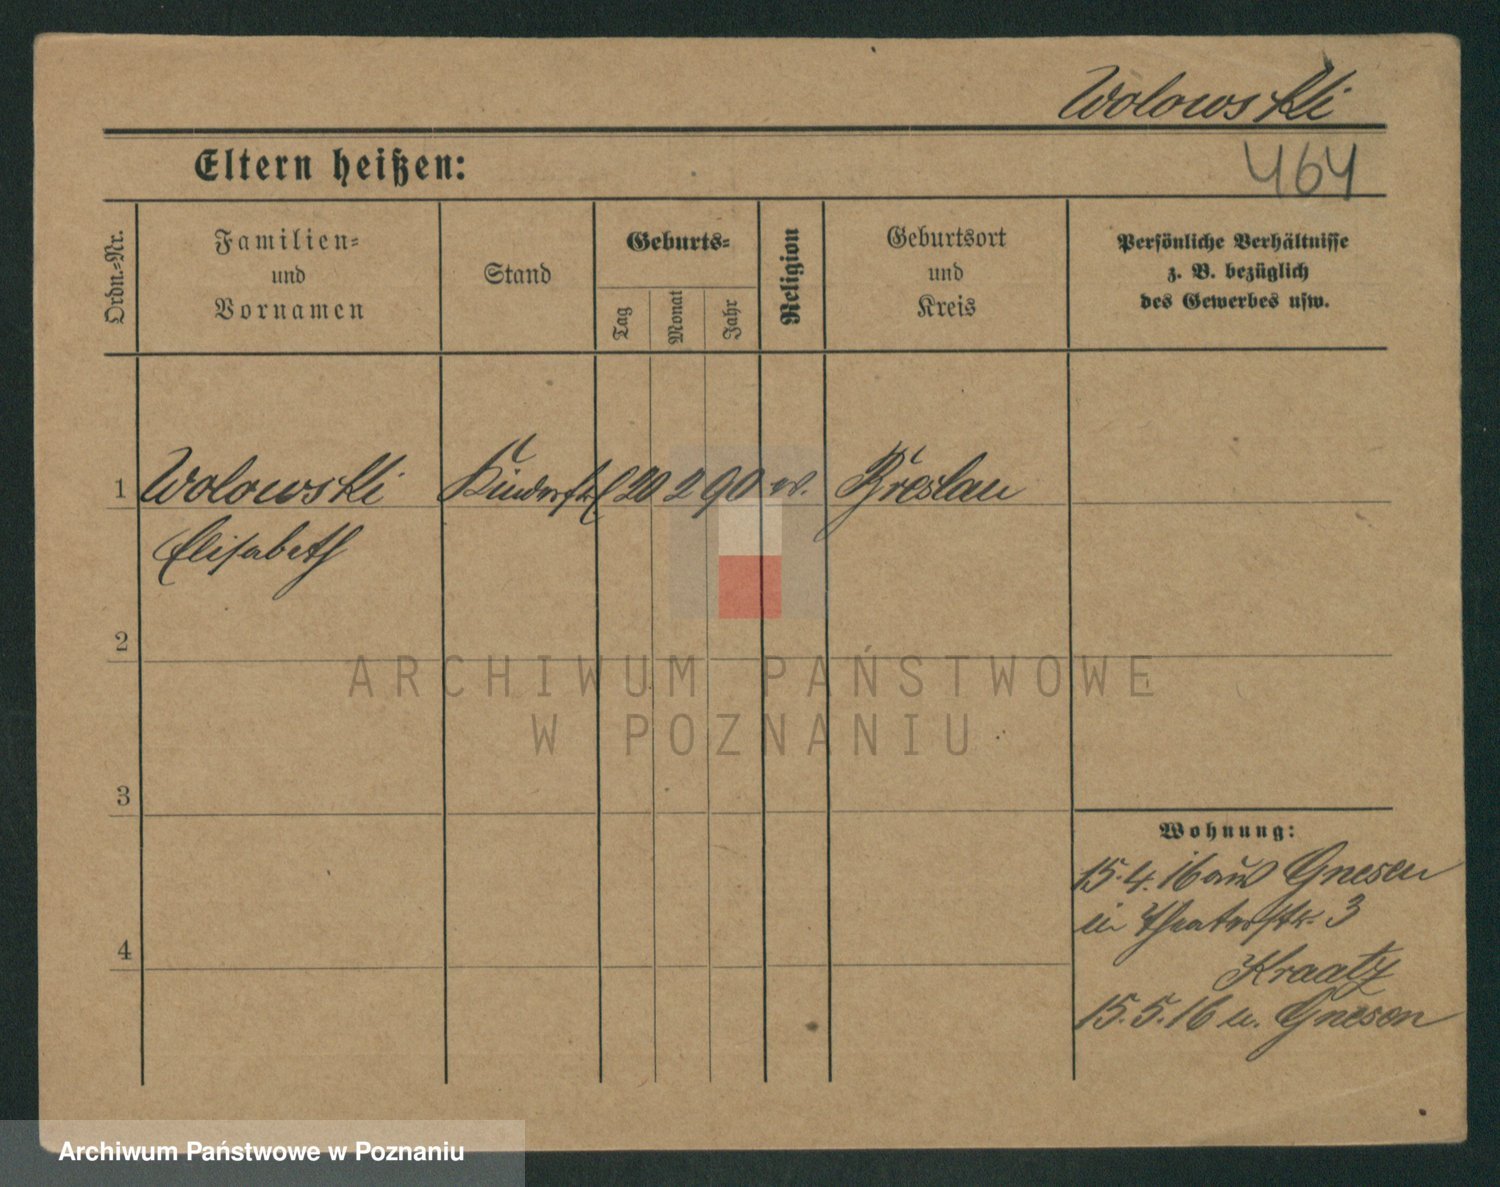 Wolowski
Eltern heißen:
464
Ordn.-Nr.
Familien-
und
Vornamen
Stand
Geburts-
Tag
Monat
Jahr
Religion
Geburtsort
und
Kreis
Persönliche Verhältnisse
z. B. bezüglich
des Gewerbes usw.
1 Wolowski 20 2 90 ev. Breslau
Elisabeth
2
3
4
Wohnung:
15.4.16 aus Gnesen
in Theaterstr. 3
Kraatz
15.5.16 n. Gnesen
ARCHIWUM PAŃSTWOWE
W POZNANIU
Archiwum Państwowe w Poznaniu